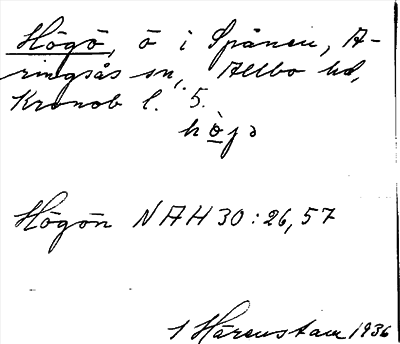 Högö, ö i Spånen, A-
ringsås sn, Allbo hd,
Kronob l. 5.
hö̀jə
Högön NAH 30:26,57
1 Härenstam 1936